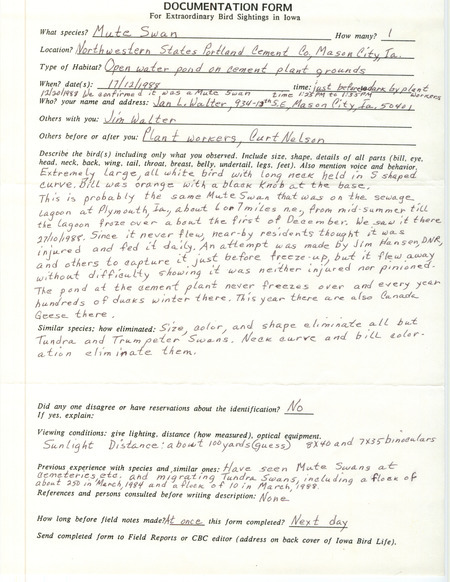 DOCUMENTATION FORM
For Extraordinary Bird Sightings in Iowa
What species? Mute Swan How many? 1
Location? Northwestern States Portland Cement Co, Mason City, Ia.
Type of Habitat? Open water pond on cement plant grounds
When? date(s): 17/12/1988 time: just before dark by plant workers
18/12/1988 We confirmed it was a Mute Swan time 1:25 PM to 1:35 PM
Who? your name and address: Jan L. Walter, 934-13th S.E, Mason City, Ia, 50401
Others with you: Jim Walter
Others before or after you: Plant workers, Curt Nelson
Describe the bird(s) including only what you observed. Include size, shape, details of all parts (bill, eye,
head, neck, back, wing, tail, throat, breast, belly, undertail, legs, feet). Also mention voice and behavior.
Extremely large, all white bird with long neck held in S shaped
curve. Bill was orange with a black knob at the base.
This is probably the same Mute Swan that was on the sewage
lagoon at Plymouth, Ia, about 6 or 7 miles n.e, from mid-summer till
the lagoon froze over about the first of December. We saw it there
27/10/1988. Since it never flew, near-by residents thought it was
injured and fed it daily. An attempt was made by Jim Hansen, DNR,
and others to capture it just before freeze-up, but it flew away
without difficulty showing it was neither injured nor pinioned.
The pond at the cement plant never freezes over and every year
hundreds of ducks winter there. This year there are also Canada
Geese there.
Similar species; how eliminated: Size, color, and shape eliminate all but
Tundra and Trumpeter Swans. Neck curve and bill color-
ation eliminate them.
Did any one disagree or have reservations about the identification? No
If yes, explain:
Viewing conditions: give lighting, distance (how measured), optical equipment.
Sunlight Distance: about 100 yards (guess) 8X40 and 7X35 binoculars
Previous experience with species and similar ones: Have seen Mute Swans at
cemeteries etc. and migrating Tundra Swans, including a flock of
about 250 in March, 1984 and a flock of 10 in March, 1988.
References and persons consulted before writing description: None
How long before field notes made? At once this form completed? Next day
Send completed form to Field Reports or CBC editor (address on back cover of Iowa Bird Life).